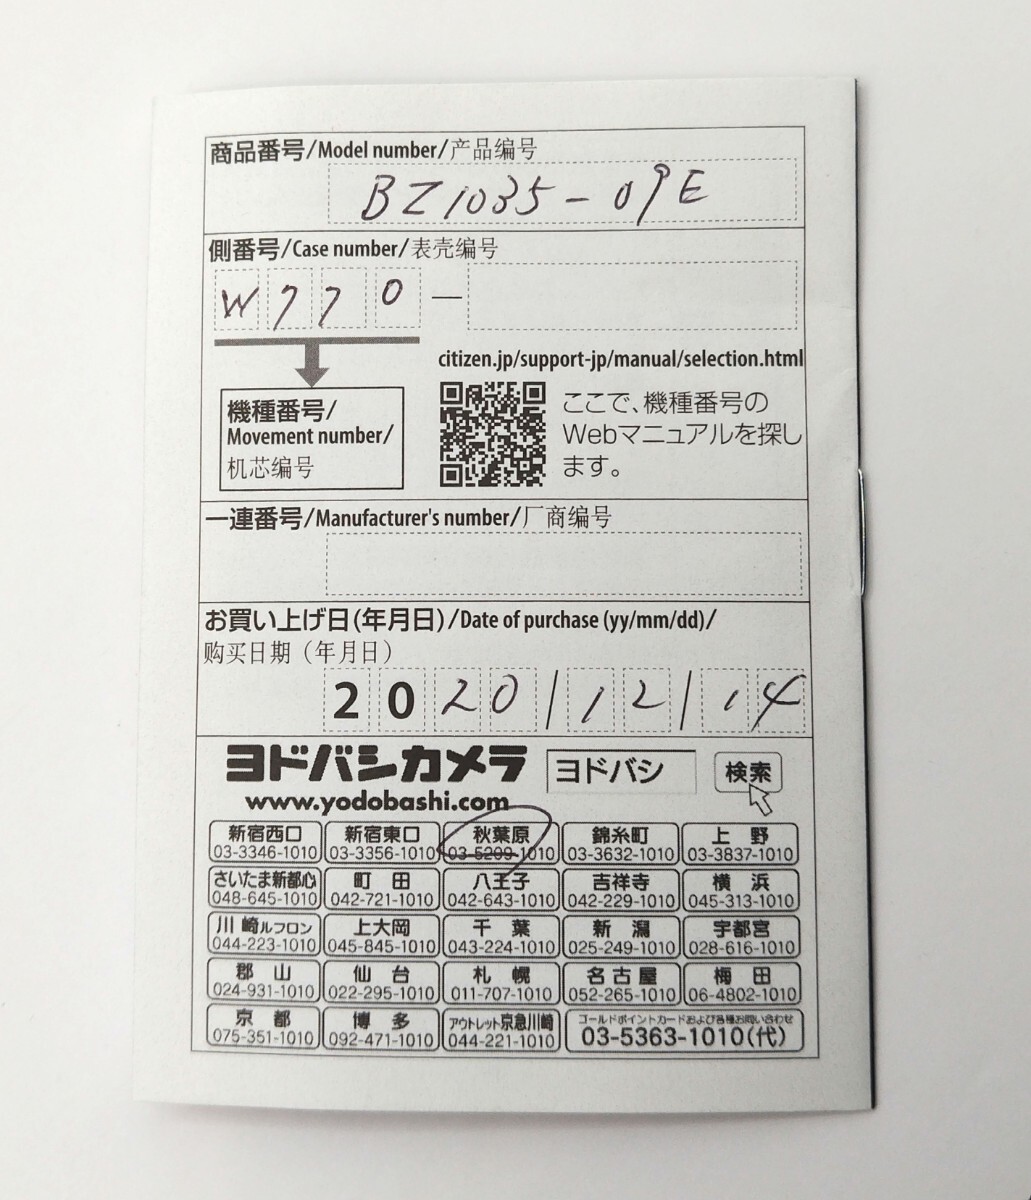 商品番号/Model number/产品编号
BZ1035-09E
側番号/Case number/表壳编号
W770 —
citizen.jp/support-jp/manual/selection.html
機種番号/
Movement number/
机芯编号
ここで、機種番号の
Webマニュアルを探し
ます。
一連番号/Manufacturer's number/厂商编号
お買い上げ日(年月日)/Date of purchase (yy/mm/dd)/
购买日期（年月日）
2020/12/14
ヨドバシカメラ ヨドバシ 検索
www.yodobashi.com
新宿西口 新宿東口 秋葉原 錦糸町 上野
03-3346-1010 03-3356-1010 03-5209-1010 03-3632-1010 03-3837-1010
さいたま新都心 町田 八王子 吉祥寺 横浜
048-645-1010 042-721-1010 042-643-1010 042-229-1010 045-313-1010
川崎ルフロン 上大岡 千葉 新潟 宇都宮
044-223-1010 045-845-1010 043-224-1010 025-249-1010 028-616-1010
郡山 仙台 札幌 名古屋 梅田
024-931-1010 022-295-1010 011-707-1010 052-265-1010 06-4802-1010
京都 博多 アウトレット京急川崎 ゴールドポイントカードおよび各種お問い合わせ
075-351-1010 092-471-1010 044-221-1010 03-5363-1010(代)